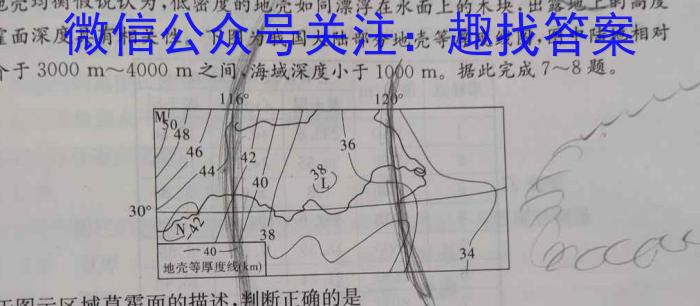 壳均衡假说认为,低密度的地壳如同漂浮在水面上的木块,出露地上的高度
微信公众号关注:趣找答案
介于3000 m~4000 m之间,海域深度小于1000 m。据此完成7~8题。
116° 120°
M 50 48 46 44 42 40 38 L 36
30° N 42 38 34
—40— 地壳等厚度线(km)
图示区域莫霍面的描述,判断正确的是